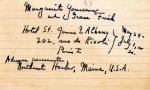 Marguerite Yourcenar
et Grace Frick
Hotel St. James & Albany
202, rue de Rivoli
Paris I
May 24 -
July 1,
Adresse permanente
Northeast Harbor, Maine, U.S.A.